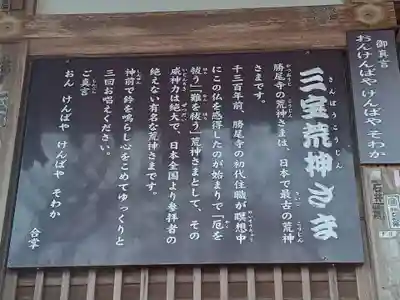 三宝荒神さま
さんぽうこうじん
勝尾寺の荒神さまは、日本で最古の荒神
さまです。
千三百年前、勝尾寺の初代住職が瞑想中
にこの仏を感得したのが始まりで「厄を
祓う」「難を祓う」荒神さまとして、その
威神力は絶大で、日本全国より参拝者の
絶えない有名な荒神さまです。
神前で鈴を鳴らし心をこめてゆっくりと
三回お唱えください。
ご真言
おん けんばや けんばや そわか
合掌
御真言
おんけんばやけんばやそわか